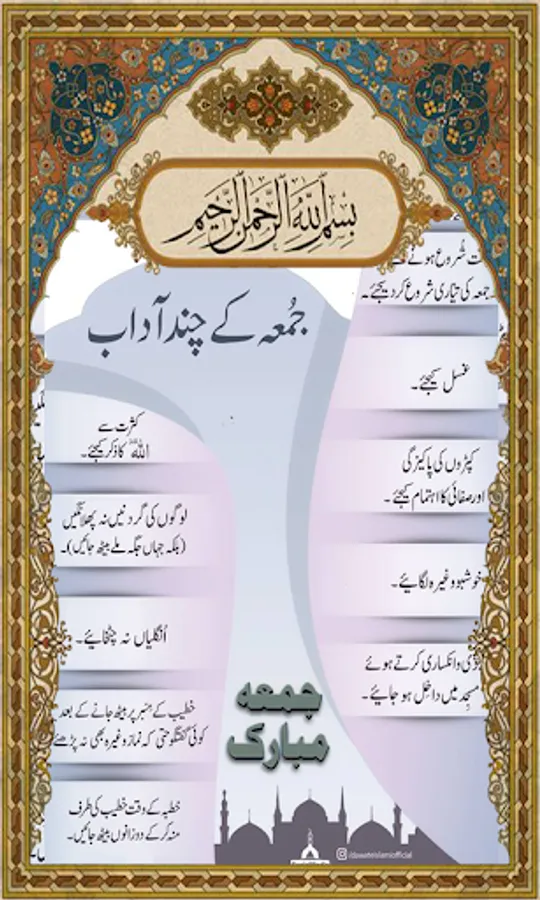 بِسْمِ اللّٰهِ الرَّحْمٰنِ الرَّحِيْمِ
جمُعہ کے چند آداب
شُروع ہونے
جمعہ کی تیّاری شروع کردیجئے۔
غسل کیجئے۔
کپڑوں کی پاکیزگی
اور صفائی کا اہتمام کیجئے۔
خوشبو وغیرہ لگائیے۔
وانکساری کرتے ہوئے
مسجِد میں داخِل ہو جائیے۔
کثرت سے
اللہ کا ذکر کیجئے۔
لوگوں کی گردنیں نہ پھلانگیں
(بلکہ جہاں جگہ ملے بیٹھ جائیں)۔
اُنگلیاں نہ چٹخائیے۔
خطیب کے منبر پر بیٹھ جانے کے بعد
کوئی گفتگو حتی کہ نماز وغیرہ بھی نہ پڑھئے
خطبہ کے وقت خطیب کی طرف
منہ کرکے دو زانوں بیٹھ جائیں۔
جمعہ
مبارک
/dawateislamiofficial